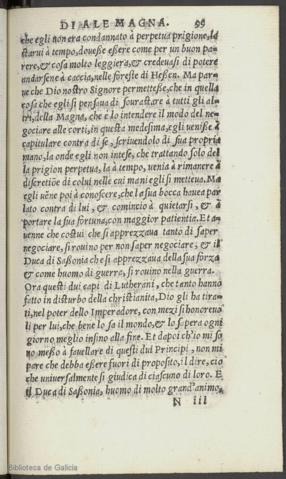 DI ALEMAGNA. 99
che egli non era condannato à perpetua prigione, lo
starui à tempo, doueße eßere come per un buon pa-
rere, & cosa molto leggiera, & credeuasi di potere
andarsene à caccia, nelle foreste di Heßen. Ma par-
ue che Dio nostro Signore permetteße, che in quella
cosa che egli si pensaua di sourastare à tutti gli al-
tri, della Magna, che è lo intendere il modo del ne-
gociare alle corti, in questa medesima, egli ueniße à
capitulare contra di se, scriuendolo di sua propria
mano, la onde egli non intese, che trattando solo del
la prigion perpetua, la à tempo, uenia à rimanere à
discretiõe di colui nelle cui mani egli si metteua. Ma
egli uẽne poi à conoscere, che la sua bocca hauea par
lato contra di lui, & cominciò à quietarsi, & à
portare la sua fortuna, con maggior patientia. Et a-
uenne che costui che si apprezzaua tanto di saper
negociare, si rouino per non saper negociare; & il
Duca di Saßonia che si apprezzaua della sua forza
& come huomo di guerra, si rouino nella guerra.
Ora questi dui capi di Lutherani, che tanto hanno
fatto in disturbo della christianita, Dio gli ha tira-
ti, nel poter dello Imperadore, con mezi si honoreuo
li per lui, che bene lo sa il mondo, & lo sapera ogni
giorno meglio insino alla fine. Et dapoi ch'io mi so
no meßo à fauellare di questi dui Principi, non mi
pare che debba eßere fuori di proposito, il dire, cio
che uniuersalmente si giudica di ciascuno di loro. E
il Duca di Saßonia, huomo di molto grand'animo,
N iii
Biblioteca de Galicia